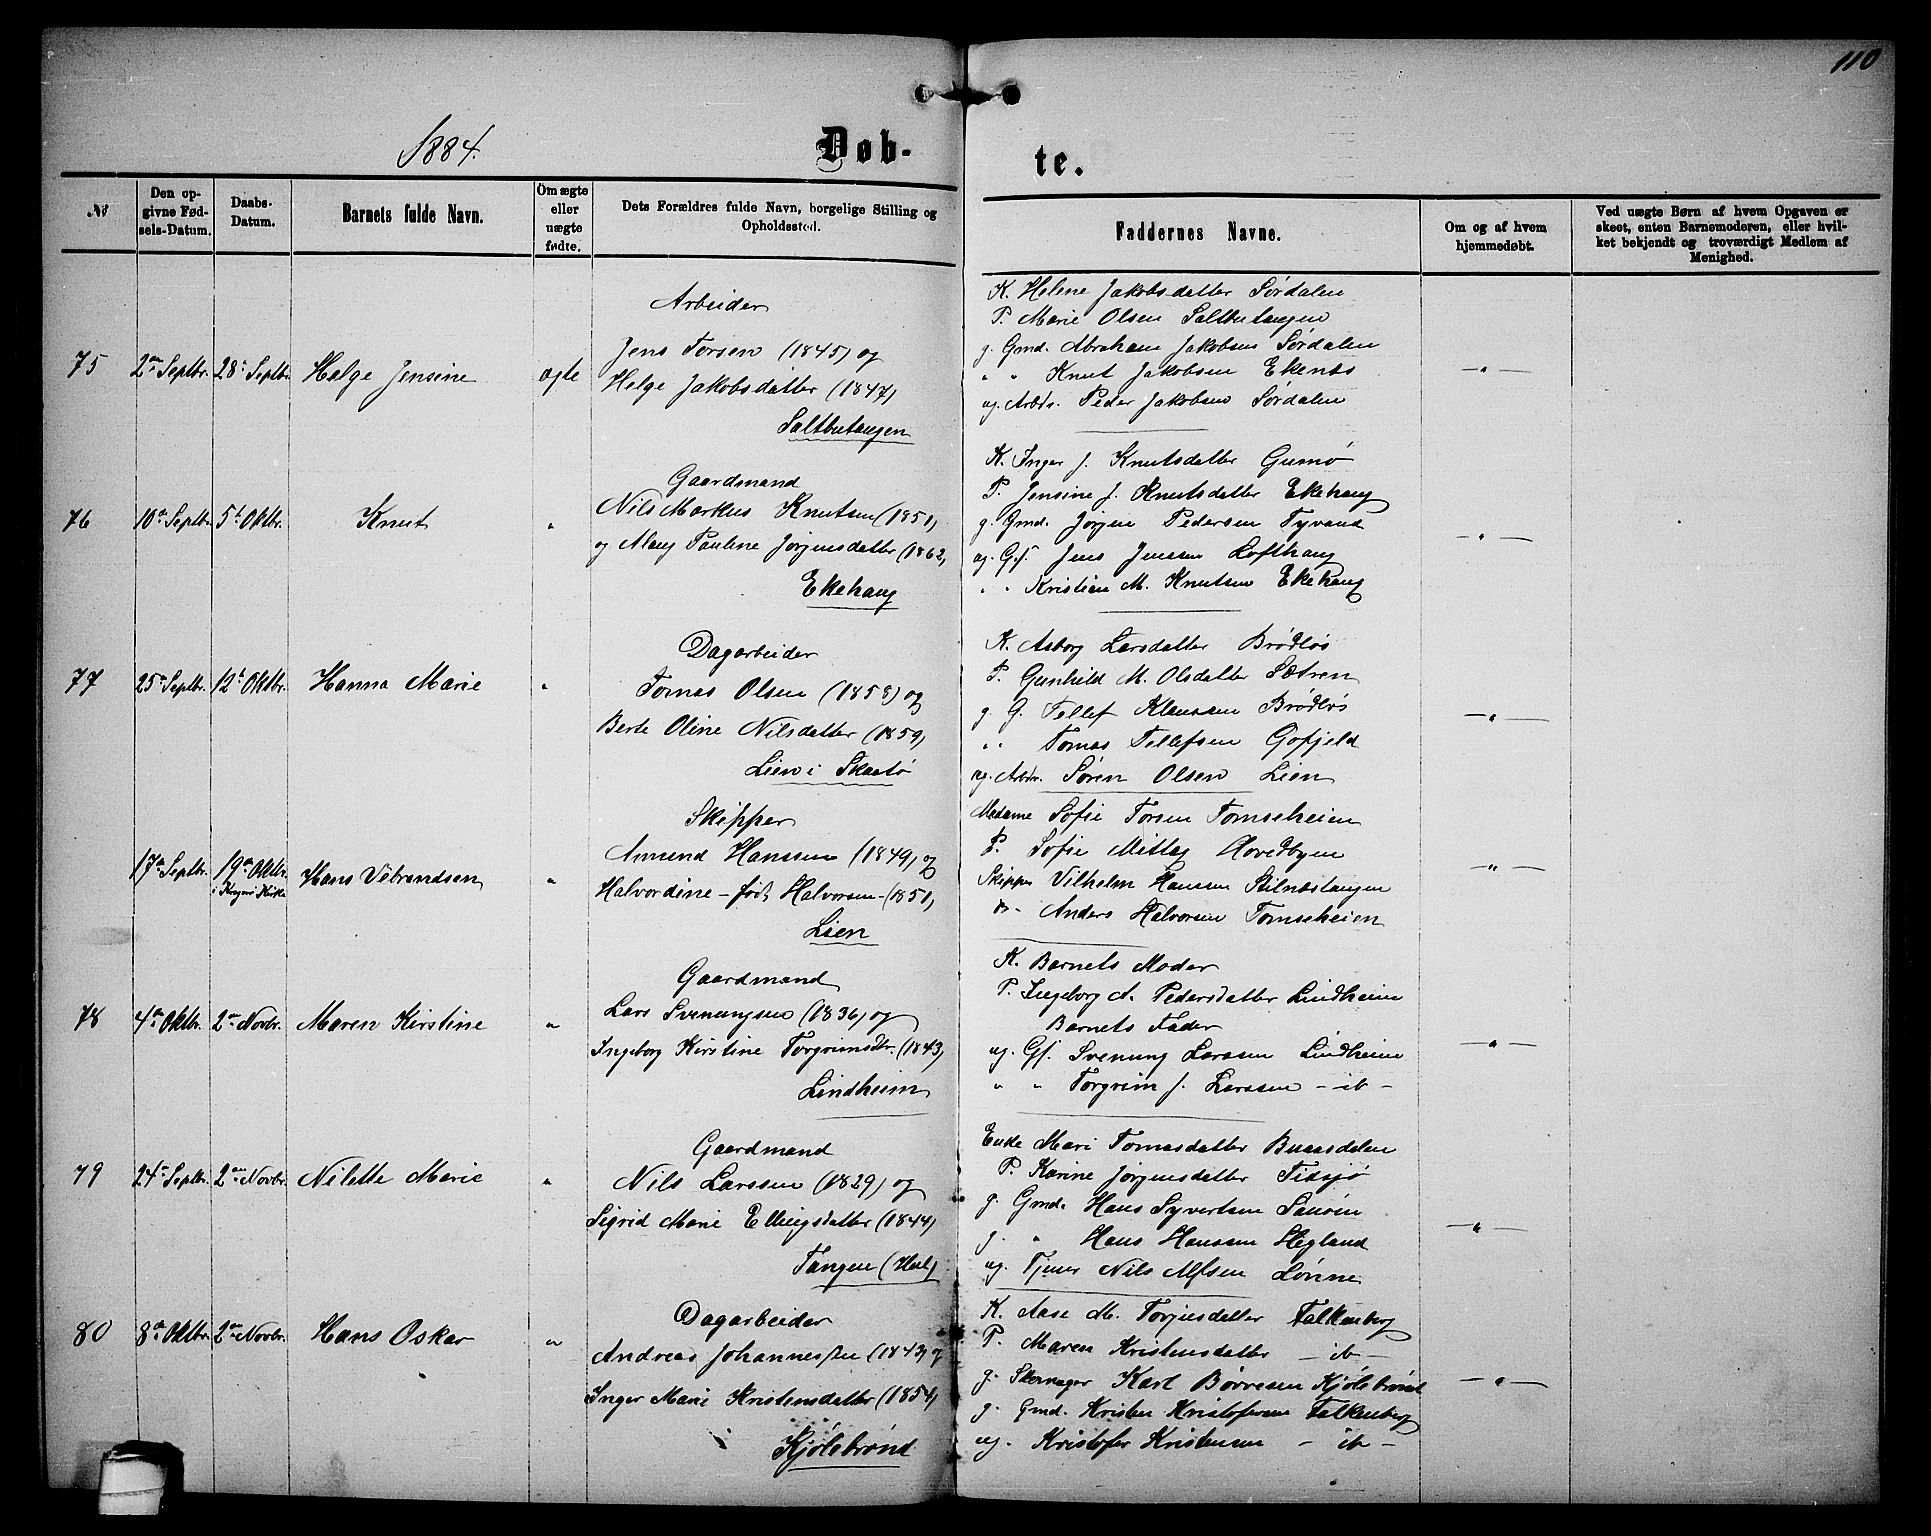 110
1884.
Døb-
te.
№
Den op-
givne Fød-
sels-Datum.
Daabs-
Datum.
Barnets fulde Navn.
Om ægte
eller
uægte
fødte.
Dets Forældres fulde Navn, borgelige Stilling og
Opholdssted.
Faddernes Navne.
Om og af hvem
hjemmedøbt.
Ved uægte Børn af hvem Opgaven er
skeet, enten Barnemoderen, eller hvil-
ket bekjendt og troværdigt Medlem af
Menighed.
75 2den Septbr. 28de Septbr. Helge Jensine ægte
Arbeider
Jens Torsen (1845) og
Helge Jakobsdatter (1847)
Saltbutangen
K. Helene Jakobsdatter Sørdalen
P. Marie Olsen Saltbutangen
g. Gmd. Abraham Jakobsen Sørdalen
" " Knut Jakobsen Ekenes
ug. Arbdr. Peder Jakobsen Sørdalen
— " —
76 10de Septbr. 5te Oktbr. Knut "
Gaardmand
Nils Markus Knutsen (1851)
og Alaug Pauline Jørgensdatter (1862)
Ekehaug
K. Inger J. Knutsdatter Gumø
P. Jensine J. Knutsdatter Ekehaug
g. Gmd. Jørgen Pedersen Tyvand
ug. Gf. Jens Jenssen Lofthaug
" " Kristian M. Knutsen Ekehaug
— " —
77 25de Septbr. 12te Oktbr. Hanna Marie "
Dagarbeider
Tomas Olsen (1858) og
Berte Oline Nilsdatter (1859)
Lien i Skaatø
K. Asborg Larsdatter Brødløs
P. Gunhild M. Olsdatter Sætren
g. G. Tellef Klausen Brødløs
" " Tomas Tellefsen Gofjeld
ug. Arbdr. Søren Olsen Lien
— " —
17de Septbr. 19de Oktbr. Hans Vibrandsen "
i Kragerø Kirke
Skipper
Amund Hanssen (1849) og
Halvordine - født Halvorsen - (1851)
Lien
Madame Sofie Torsen Tomseheien
P. Sofie Mittag Hovedbyen
Skipper Vilhelm Hansen Stilnæstangen
do - Anders Halvorsen Tomseheien
— " —
78 4de Oktbr. 2den Novbr. Maren Kirstine "
Gaardmand
Lars Svenungsen (1836) og
Ingeborg Kirstine Torgrimsdtr. (1843)
Lindheim
K. Barnets Moder
P. Ingeborg A. Pedersdatter Lindheim
Barnets Fader
ug. Gf. Svenung Larssen Lindheim
" " Torgrim J. Larssen - ib -
— " —
79 24de Septbr. 2den Novbr. Nilette Marie "
Gaardmand
Nils Larssen (1829) og
Sigrid Marie Ellingsdatter (1844)
Tangen (Hæl)
Enke Mari Tomasdatter Buaasdalen
P. Karine Jørgensdatter Tidsjø
g. Gmd. Hans Syvertsen
g. " Hans Hanssen Hegland
ug. Tjener Nils Alfsen Lønne
— " —
80 8de Oktbr. 2den Novbr. Hans Oskar "
Dagarbeider
Andreas Johannessen (1843) og
Inger Marie Kristensdatter (1854)
i Kjølebrønd
K. Aase M. Torjusdatter Falkenberg
P. Maren Kristensdatter - ib -
g. Skomager Karl Børresen Kjølebrønd
g. Gmd. Kristen Kristofersen Falkenberg
ug. Kristofer Kristensen - ib -
— " —